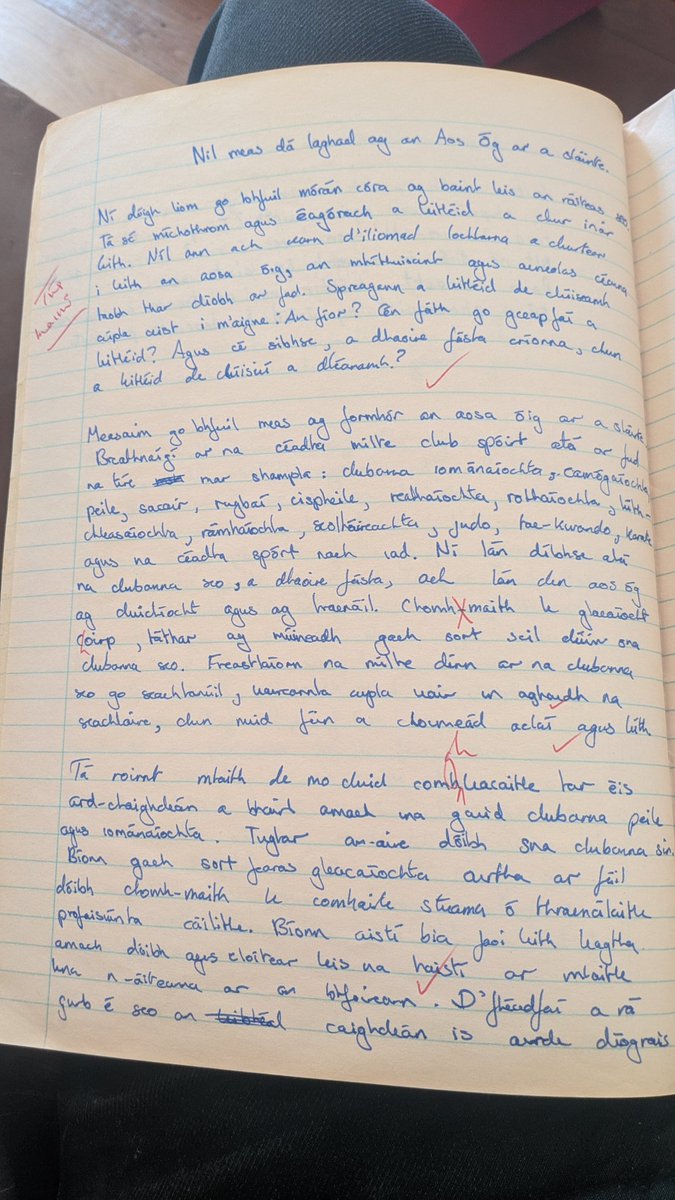 Níl meas dá laghad ag an Aos Óg ar a sláinte.
Ní dóigh liom go bhfuil mórán córa ag baint leis an ráiteas seo
Tá sé míchothrom agus éagórach a leithéid a chur inár
leith. Níl ann ach ceann d'iliomad lochtanna a chuirtear
i leith an aosa óig, an mhíthuiscint agus aineolas céanna
taobh thiar díobh ar fad. Spreagann a leithéid de chúiseamh
cúpla ceist i m'aigne: An fíor? Cén fáth go gceapfaí a
leithéid? Agus cé sibhse, a dhaoine fásta críonna, chun
a leithéid de chúisiú a dhéanamh?
Measaim go bhfuil meas ag formhór an aosa óig ar a sláinte
Breathnaígí ar na céadta míle club spóirt atá ar fud
na tíre mar shampla: clubanna iománaíochta, camógaíochta
peile, sacair, rugbaí, cispheile, reathaíochta, rothaíochta, lúth-
chleasaíochta, rámhaíochta, scoltáireachta, judo, tae-kwando, karate
agus na céadta spórt nach iad. Ní lán díbhse atá
na clubanna seo, a dhaoine fásta, ach lán den aos óg
ag cluichíocht agus ag traenáil. Chomh maith le gleacaíocht
coirp, táthar ag múineadh gach sort scil dúinn sna
clubanna seo. Freastlaíonn na mílte dínn ar na clubanna
seo go seachtainiúil, uaireanta cúpla uair in aghaidh na
seachtaine, chun muid féin a choimeád aclaí agus lúth
Tá roinnt mhaith de mo chuid comhghleacaithe tar éis
ard-chaighdeán a bhaint amach ina gcuid clubanna peile
agus iománaíochta. Tugtar an-aire dóibh sna clubanna sin.
Bíonn gach sort fearas gleacaíochta curtha ar fáil
dóibh chomh-maith le comhairle stuama ó thraenálaithe
profaisiúnta cáilithe. Bíonn aistí bia faoi leith leagtha
amach dóibh agus cloítear leis na haistí ar mhaithe
lena n-áiteanna ar an bhfoireann. D'fhéadfaí a rá
gurb é seo an caighdeán is airde díograis